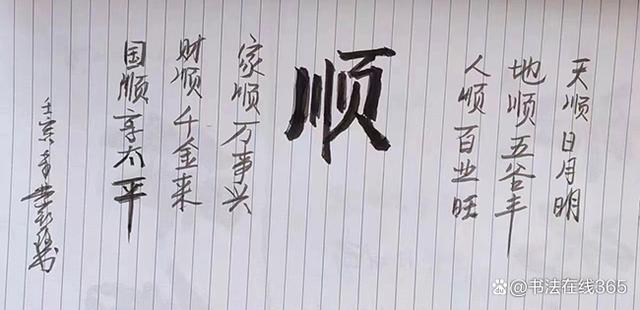 天顺日月明
地顺五谷丰
人顺百业旺
顺
家顺万事兴
财顺千金来
国顺享太平
书法在线365